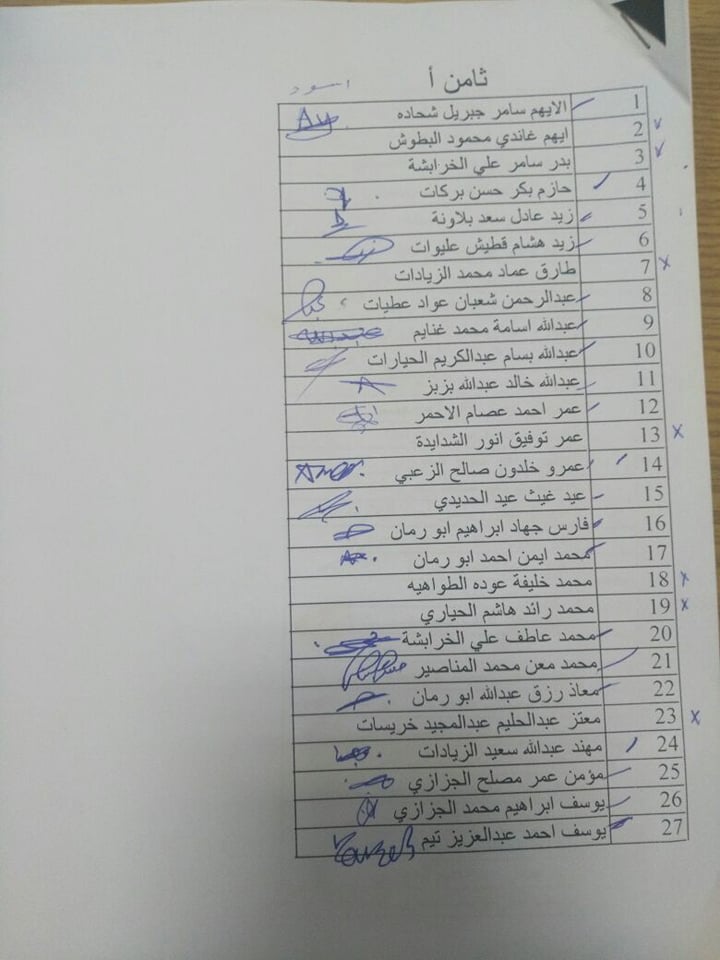 ثامن أ
1 الايهم سامر جبريل شحاده
2 ايهم غاندي محمود البطوش
3 بدر سامر علي الخرابشة
4 حازم بكر حسن بركات
5 زيد عادل سعد بلاونة
6 زيد هشام قطيش عليوات
7 طارق عماد محمد الزيادات
8 عبدالرحمن شعبان عواد عطيات
9 عبدالله اسامة محمد غنايم
10 عبدالله بسام عبدالكريم الحيارات
11 عبدالله خالد عبدالله بزبز
12 عمر احمد عصام الاحمر
13 عمر توفيق انور الشدايدة
14 عمرو خلدون صالح الزعبي
15 عيد غيث عيد الحديدي
16 فارس جهاد ابراهيم ابو رمان
17 محمد ايمن احمد ابو رمان
18 محمد خليفة عوده الطواهيه
19 محمد رائد هاشم الحياري
20 محمد عاطف علي الخرابشة
21 محمد معن محمد المناصير
22 معاذ رزق عبدالله ابو رمان
23 معتز عبدالحليم عبدالمجيد خريسات
24 مهند عبدالله سعيد الزيادات
25 مؤمن عمر مصلح الجزازي
26 يوسف ابراهيم محمد الجزازي
27 يوسف احمد عبدالعزيز تيم